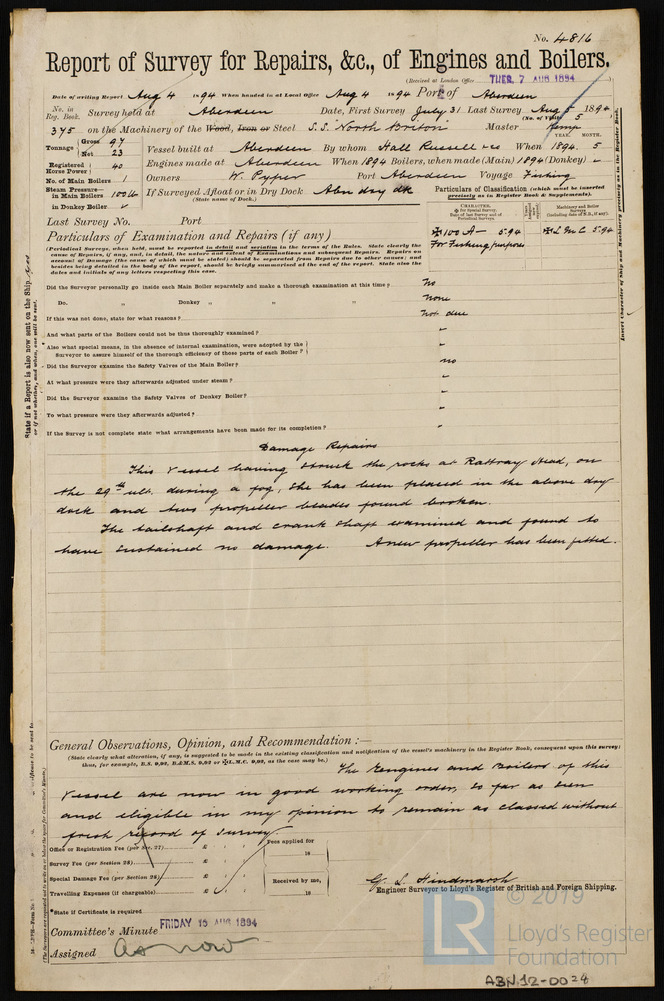 No. 4816
Report of Survey for Repairs, &c., of Engines and Boilers.
(Received at London Office TUES. 7 AUG 1894)
Date of writing Report Aug 4 1894 When handed in at Local Office Aug 4 1894 Port of Aberdeen
No. in Reg. Book. Survey held at Aberdeen Date, First Survey July 31 Last Survey Aug 5 1894
(No. of Visits 5)
375 on the Machinery of the Wood, Iron or Steel S.S. North Briton Master Kemp
Tonnage Gross 97 Net 23 Vessel built at Aberdeen By whom Hall Russell & Co When 1894. 5
YEAR. MONTH.
Registered Horse Power 40 Engines made at Aberdeen When 1894 Boilers, when made (Main) 1894 (Donkey) ✓
No. of Main Boilers 1 Owners W. Pyper Port Aberdeen Voyage Fishing
Steam Pressure— in Main Boilers 100 lb If Surveyed Afloat or in Dry Dock Abn dry dk
(State name of Dock.)
in Donkey Boiler ✓
Particulars of Classification (which must be inserted precisely as in Register Book & Supplements).
CHARACTER. ✠ for Special Survey. Date of last Survey and of Periodical Surveys.
Machinery and Boiler Surveys (including date of N.B., if any).
✠100 A— 5.94 ✠L.M.C. 5.94
For Fishing purposes
Last Survey No. Port
Particulars of Examination and Repairs (if any)
(Periodical Surveys, when held, must be reported in detail and seriatim in the terms of the Rules. State clearly the
cause of Repairs, if any, and, in detail, the nature and extent of Examinations and subsequent Repairs. Repairs on
account of Damage (the cause of which must be stated) should be separated from Repairs due to other causes; and
besides being detailed in the body of the report, should be briefly summarised at the end of the report. State also the
dates and initials of any letters respecting this case.
Did the Surveyor personally go inside each Main Boiler separately and make a thorough examination at this time? no
Do. „ Donkey „ „ „ none
If this was not done, state for what reasons? not due
And what parts of the Boilers could not be thus thoroughly examined? "
Also what special means, in the absence of internal examination, were adopted by the
Surveyor to assure himself of the thorough efficiency of those parts of each Boiler? "
Did the Surveyor examine the Safety Valves of the Main Boiler? no
At what pressure were they afterwards adjusted under steam? "
Did the Surveyor examine the Safety Valves of Donkey Boiler? "
To what pressure were they afterwards adjusted? "
If the Survey is not complete state what arrangements have been made for its completion? "
Damage Repairs
This vessel having struck the rocks at Rattray Head, on
the 29th ult. during a fog, She has been placed in the above dry
dock and two propeller blades found broken.
The tailshaft and crank shaft examined and found to
have sustained no damage. A new propeller has been fitted.
General Observations, Opinion, and Recommendation :—
(State clearly what alteration, if any, is suggested to be made in the existing classification and notification of the vessel's machinery in the Register Book, consequent upon this survey;
thus, for example, B.S. 9,92, B.&M.S. 9,92 or ✠L.M.C. 9,92, as the case may be.)
The Engines and Boilers of this
vessel are now in good working order, so far as seen
and eligible in my opinion to remain as classed without
fresh record of survey
Office or Registration Fee (per Sec. 27) £ : : Fees applied for
18
Survey Fee (per Section 28) £ : :
Special Damage Fee (per Section 28) £ : : Received by me,
Travelling Expenses (if chargeable) £ : : 18
L. Hindmarsh
Engineer Surveyor to Lloyd's Register of British and Foreign Shipping.
*State if Certificate is required
Committee's Minute FRIDAY 10 AUG 1894
Assigned as now
State if a Report is also now sent on the Ship
or if not, whether, and when, one will be sent.
Insert Character of Ship and Machinery precisely as in the Register Book.
© 2019
LR
Lloyd's Register
Foundation
ABN 12-0024